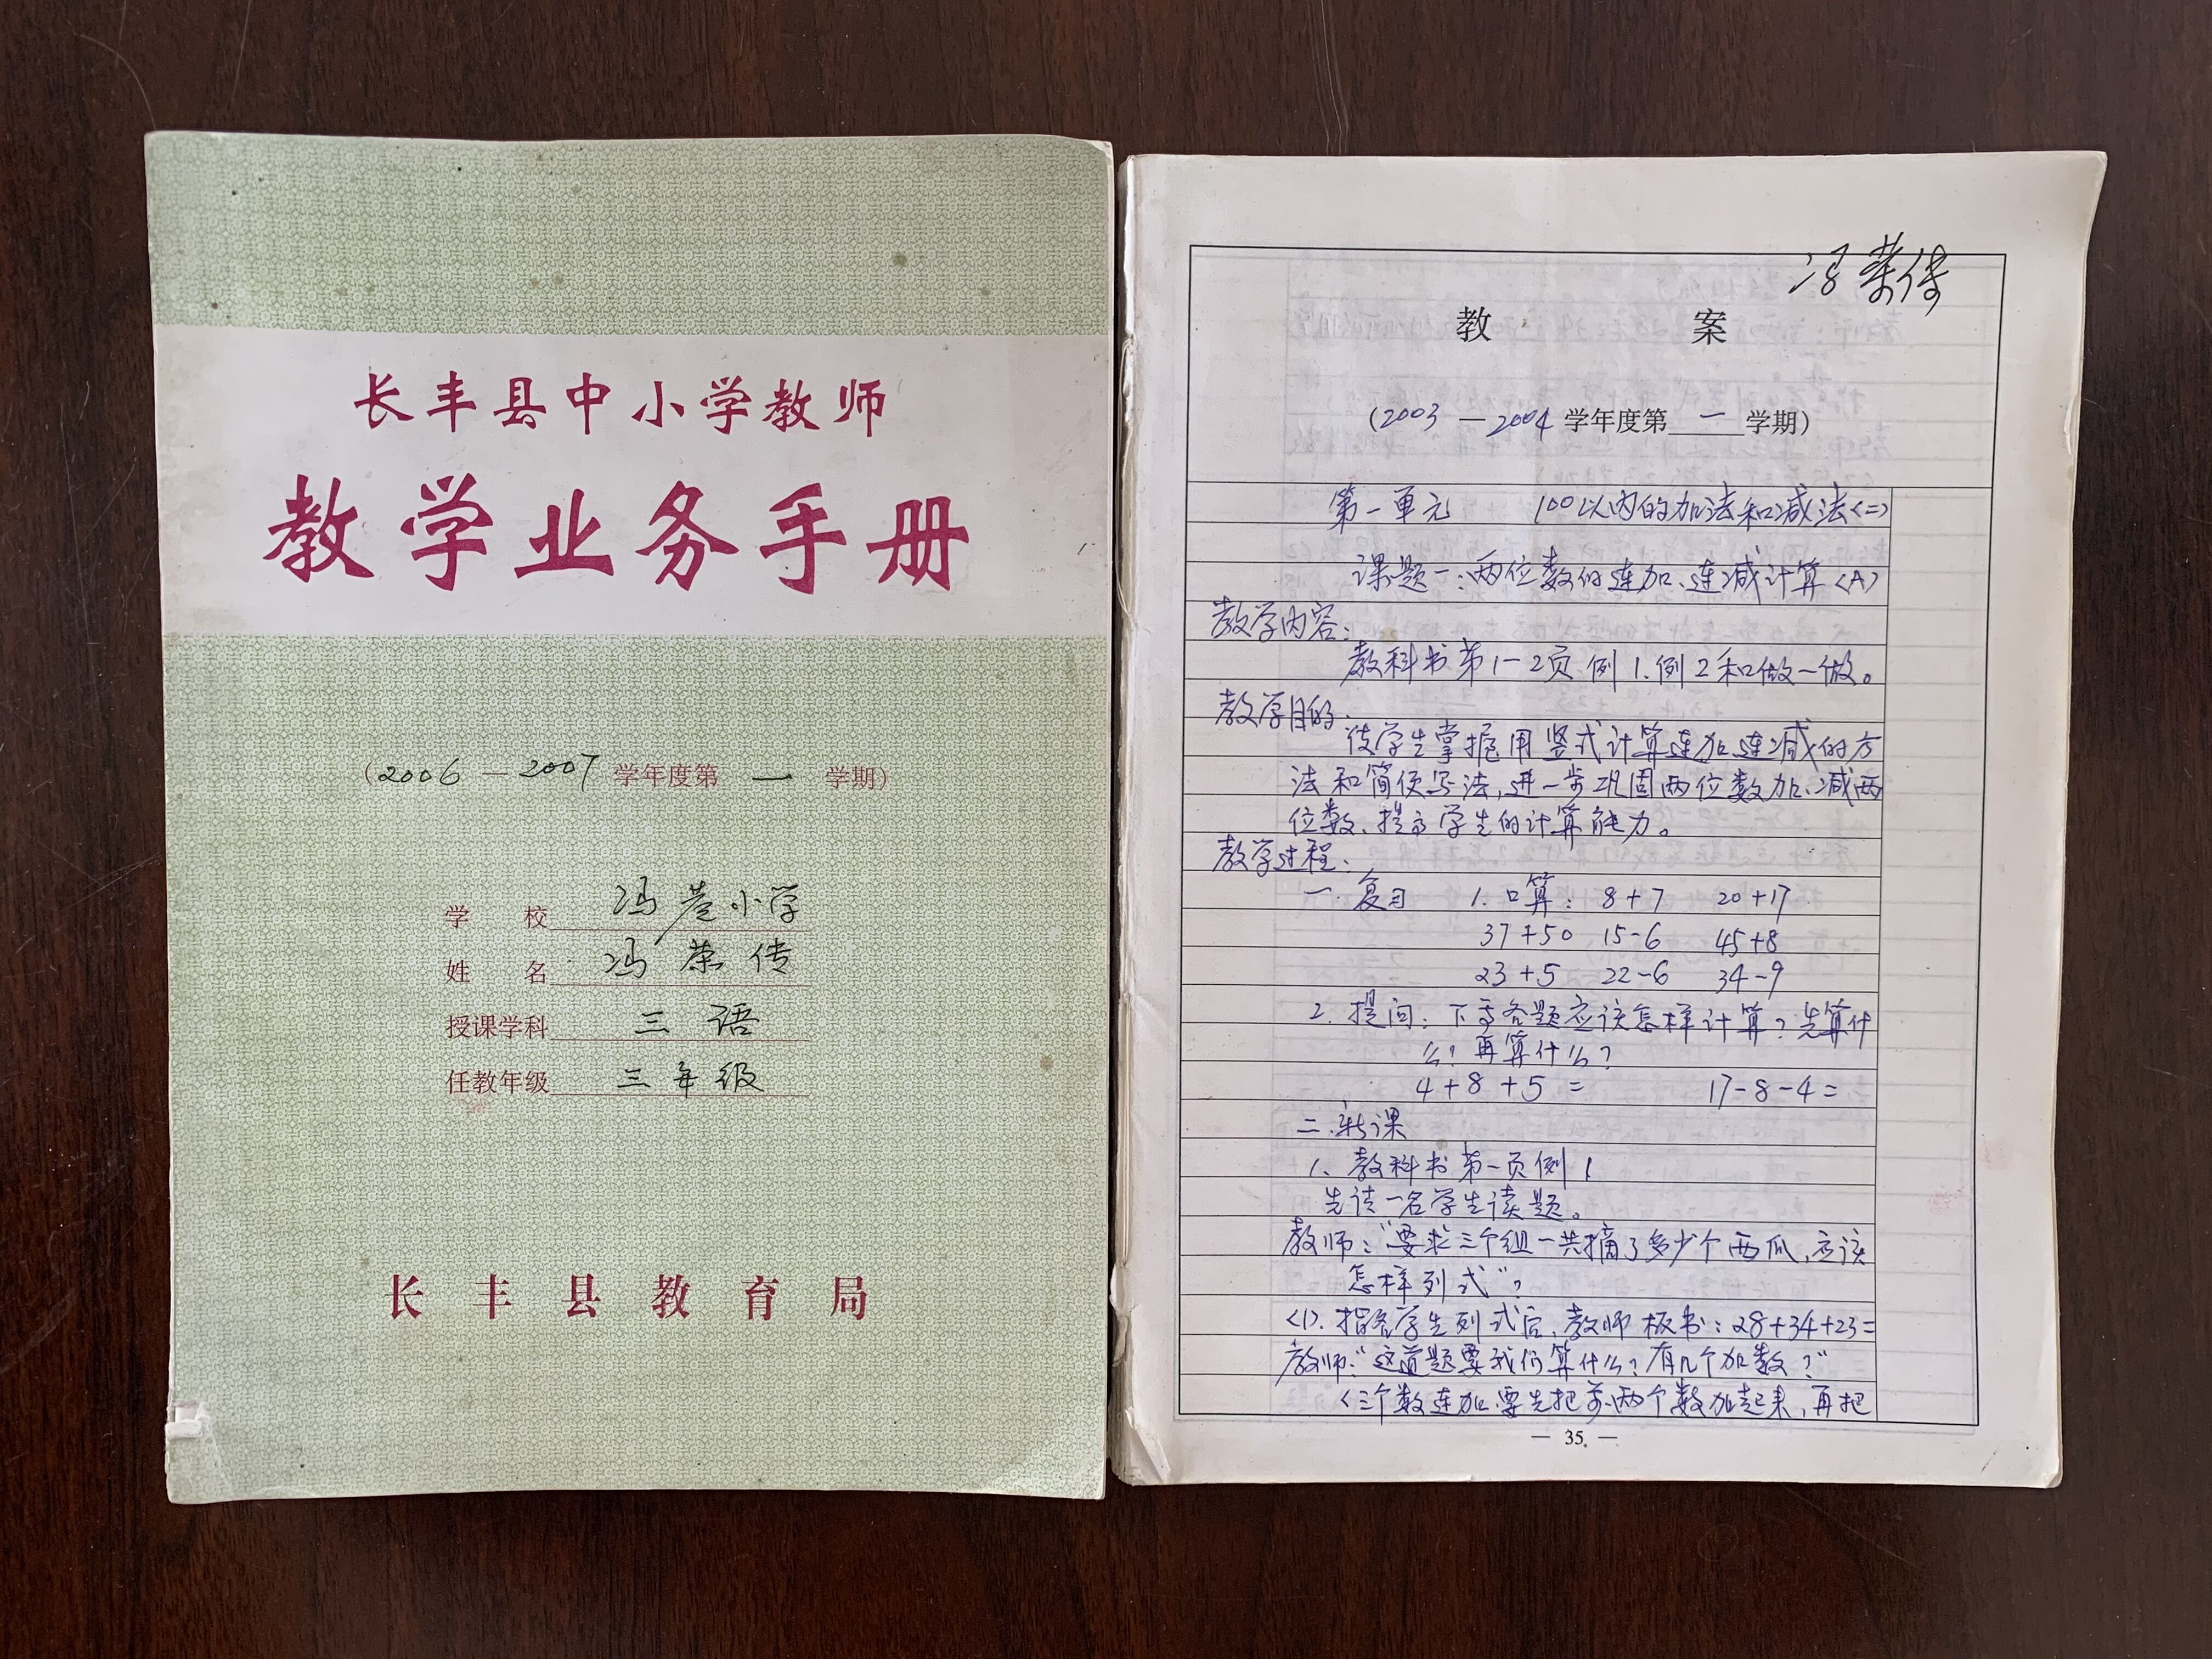 长丰县中小学教师
教学业务手册
(2006 — 2007 学年度第 一 学期)
学 校 冯巷小学
姓 名 冯荣传
授课学科 三语
任教年级 三年级
长丰县教育局
冯荣传
教 案
(2003 — 2004 学年度第 一 学期)
第一单元 100以内的加法和减法<二>
课题一:两位数的连加、连减计算<A>
教学内容:
教科书第1-2页.例1.例2和做一做。
教学目的:
使学生掌握用竖式计算连加连减的方
法和简便写法,进一步巩固两位数加、减两
位数、提高学生的计算能力。
教学过程:
一.复习 1.口算: 8+7 20+17
37+50 15-6 45+8
23+5 22-6 34-9
2.提问:下面各题应该怎样计算?先算什
么?再算什么?
4+8+5= 17-8-4=
二.新课
1.教科书第一页例1
先读一名学生读题。
教师:“要求三个组一共摘了多少个西瓜,应该
怎样列式”?
<1>.指名学生列式后,教师板书:28+34+23=
教师:“这道题要我们算什么?有几个加数?”
<三个数连加.要先把前两个数加起来,再把
— 35 —